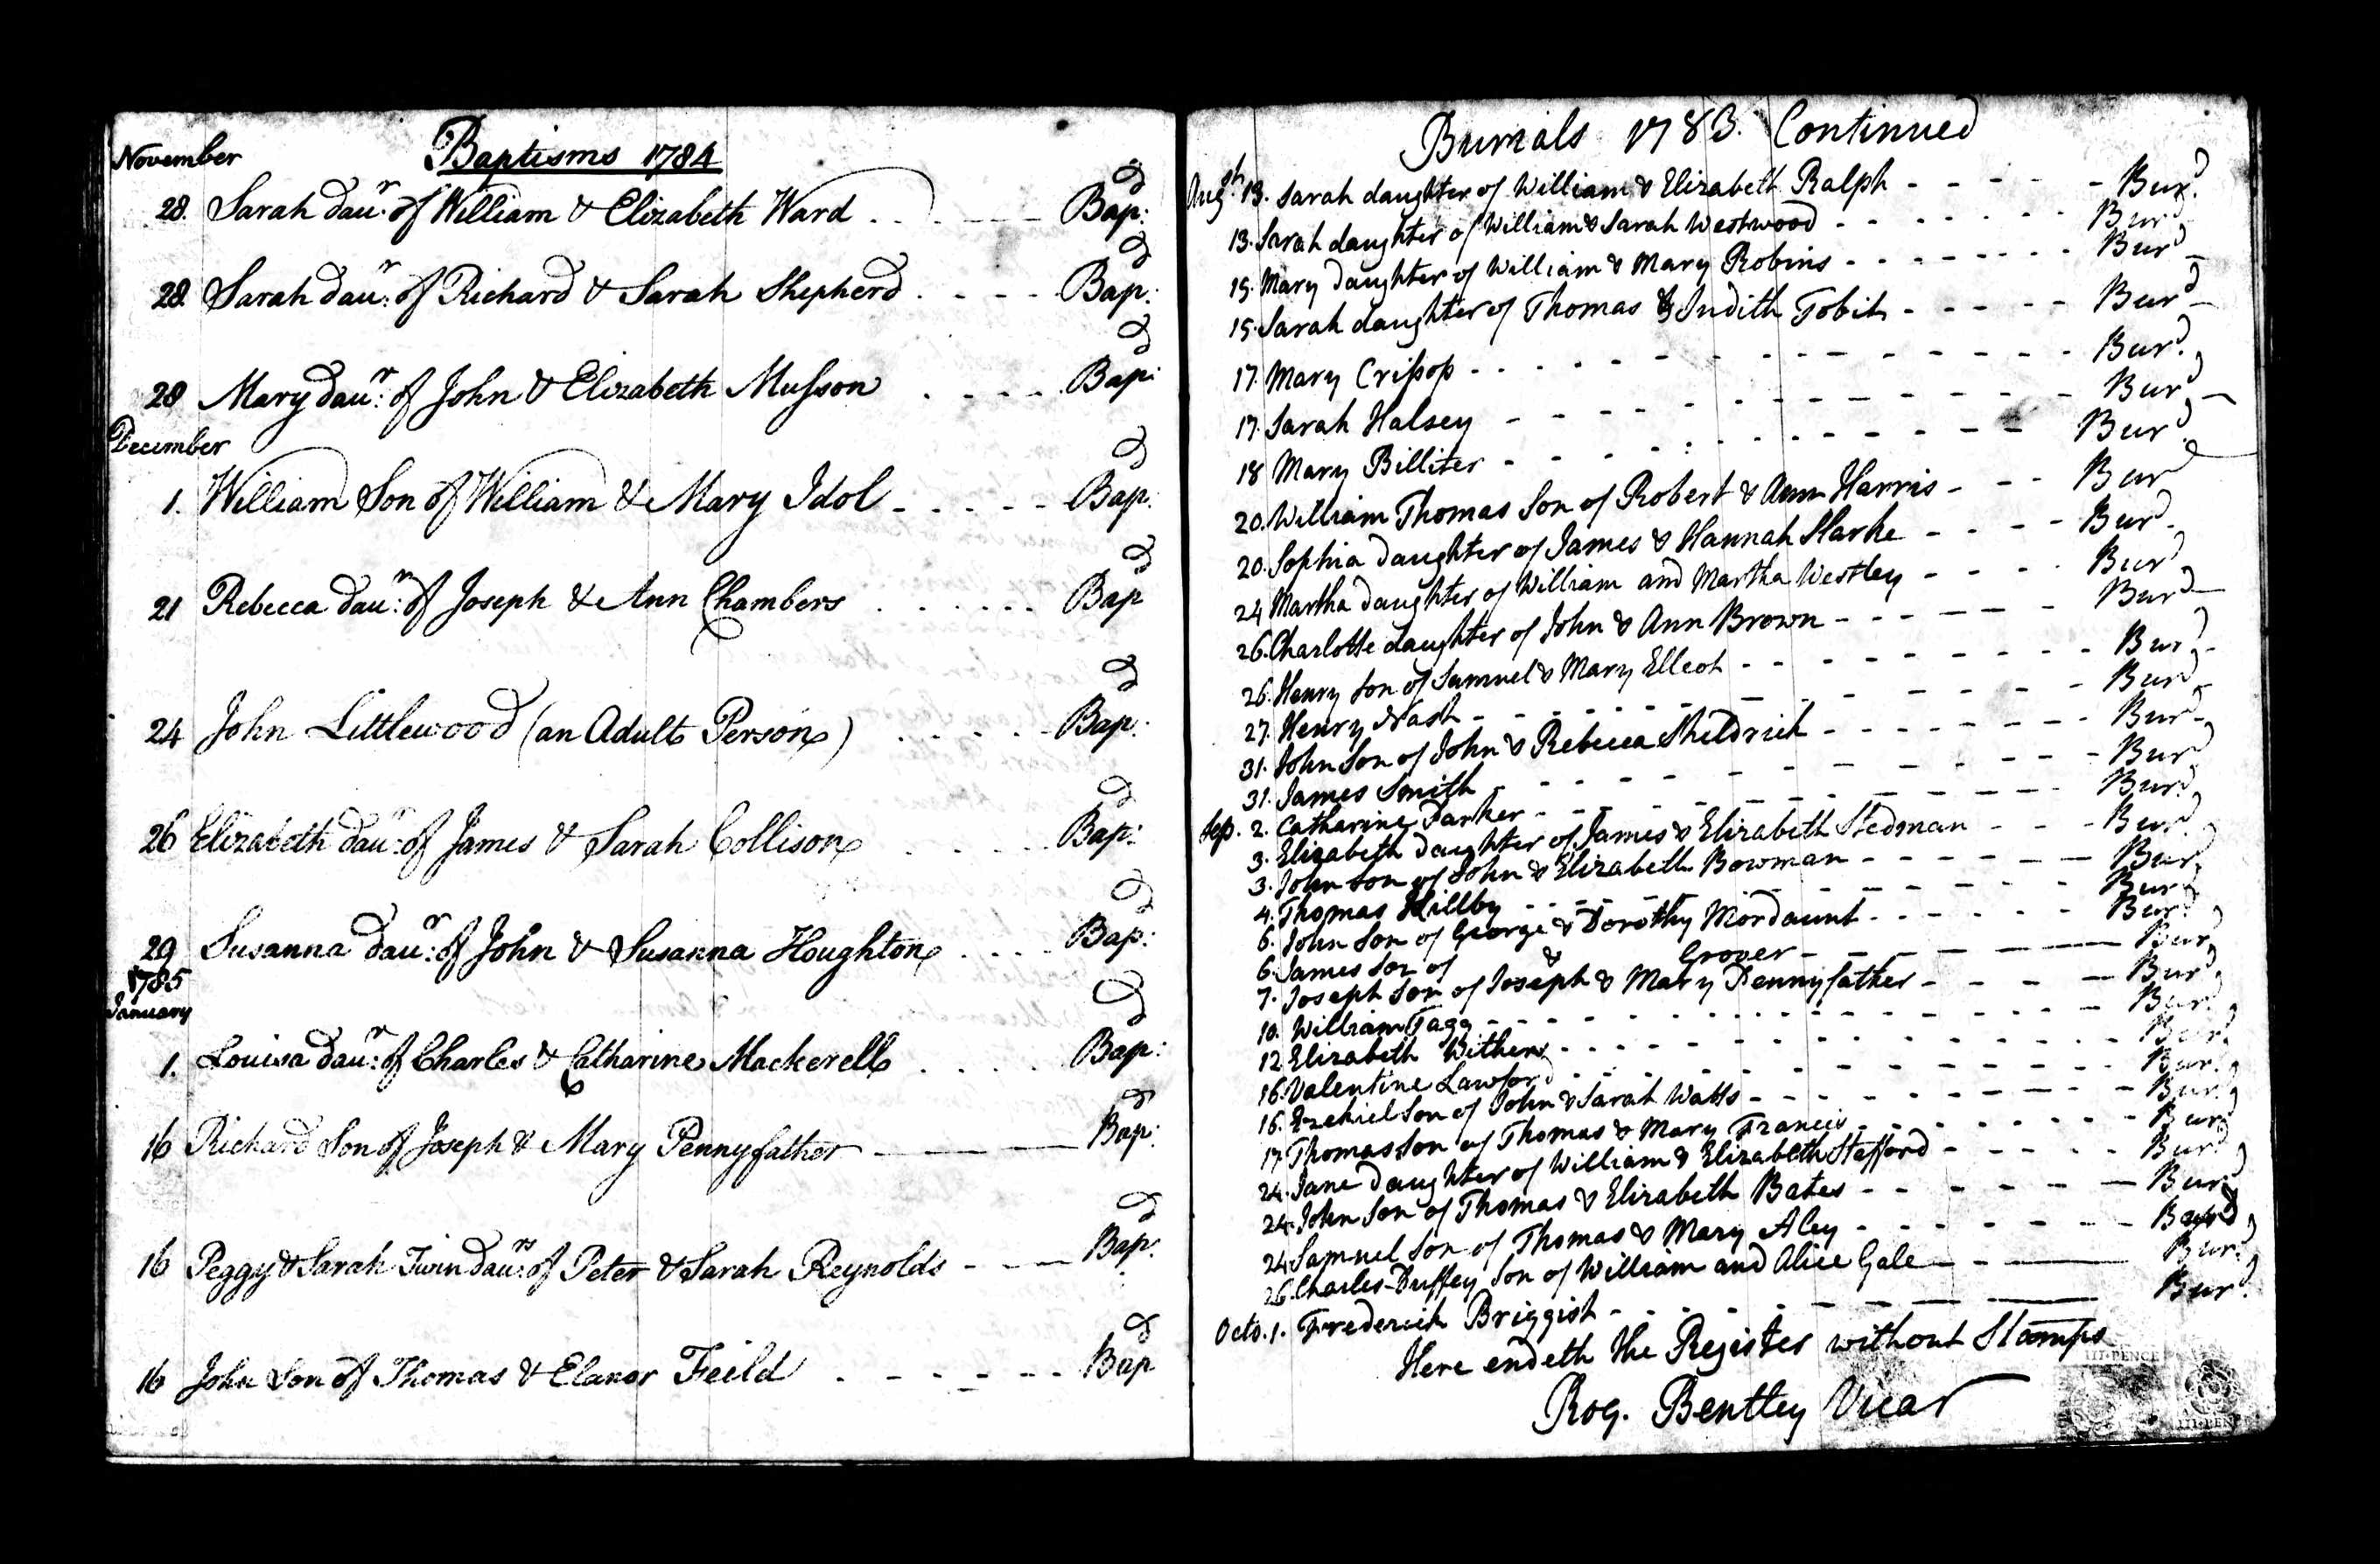 Baptisms 1784
November
28. Sarah Daur. of William & Elizabeth Ward - - - - Bap:d
28. Sarah Daur: of Richard & Sarah Shepherd - - - - Bap:d
28 Mary Daur: of John & Elizabeth Musson - - - - Bap:d
December
1. William Son of William & Mary Idol - - - - - Bap:d
21 Rebecca Daur: of Joseph & Ann Chambers - - - - - - Bapd
24 John Littlewood (an Adult Person) - - - - - Bap:d
26 Elizabeth Daur: of James & Sarah Collison - - - - Bap:d
29 Susanna Daur: of John & Susanna Houghton - - - - Bap:d
1785
January
1. Louisa Daur: of Charles & Catharine Mackerell - - - - - Bap:d
16 Richard Son of Joseph & Mary Pennyfather - - - Bap:d
16 Peggy & Sarah Twin Daurs: of Peter & Sarah Reynolds - - - Bap:d
16 John Son of Thomas & Elanor Feild - - - - - - Bapd
Burials 1783. Continued
Augst. 13. Sarah daughter of William & Elizabeth Ralph - - - - - Burd.
13. Sarah daughter of William & Sarah Westwood - - - - - - - Burd
15. Mary Daughter of William & Mary Robins - - - - - - - Burd
15. Sarah daughter of Thomas & Judith Tobit - - - - - Burd
17. Mary Crissop - - - - - - - - - - - Burd.
17. Sarah Halsey - - - - - - - - - - - Burd
18 Mary Billiter - - - - - - - - - - - Burd
20. William Thomas Son of Robert & Ann Harris - - - Burd
20. Sophia Daughter of James & Hannah Starke - - - - Burd.
24 Martha Daughter of William and Martha Westley - - - - Burd
26. Charlotte daughter of John & Ann Brown - - - - - - Burd
26. Henry Son of Samuel & Mary Elleot - - - - - - - - Burd
27. Henry Nash - - - - - - - - - - - Burd
31. John Son of John & Rebecca Sheldrick - - - - - - - Burd
31. James Smith - - - - - - - - - - - Burd
Sep. 2. Catharine Parker - - - - - - - - - - Burd.
3. Elizabeth Daughter of James & Elizabeth Stedman - - - Burd.
3. John Son of John & Elizabeth Bowman - - - - - - Burd
4. Thomas Hillby - - - - - - - - - - Burd
6. John Son of George & Dorothy Mordaunt - - - - - - Burd
6. James Son of & Grover - - - - - Burd
7. Joseph Son of Joseph & Mary Pennyfather - - - - Burd
10. William Tagg - - - - - - - - - - - Burd.
12 Elizabeth Withers - - - - - - - - - - Burd.
16. Valentine Lawford - - - - - - - - - - Burd.
16. Ezekiel Son of John & Sarah Watts - - - - - - - - Burd
17. Thomas Son of Thomas & Mary Francis - - - - - - - Burd
24. Jane Daughter of William & Elizabeth Stafford - - - - - Burd
24. John Son of Thomas & Elizabeth Bates - - - - - - Burd
24. Samuel Son of Thomas & Mary Aley - - - - - - - Burd
26. Charles-Buffey Son of William and Alice Gale - - - Burd
Octo. 1. Frederick Briggish - - - - - - - - Burd
Here endeth the Register without Stamps
Rog. Bentley Vicar
III PENCE
III PEN